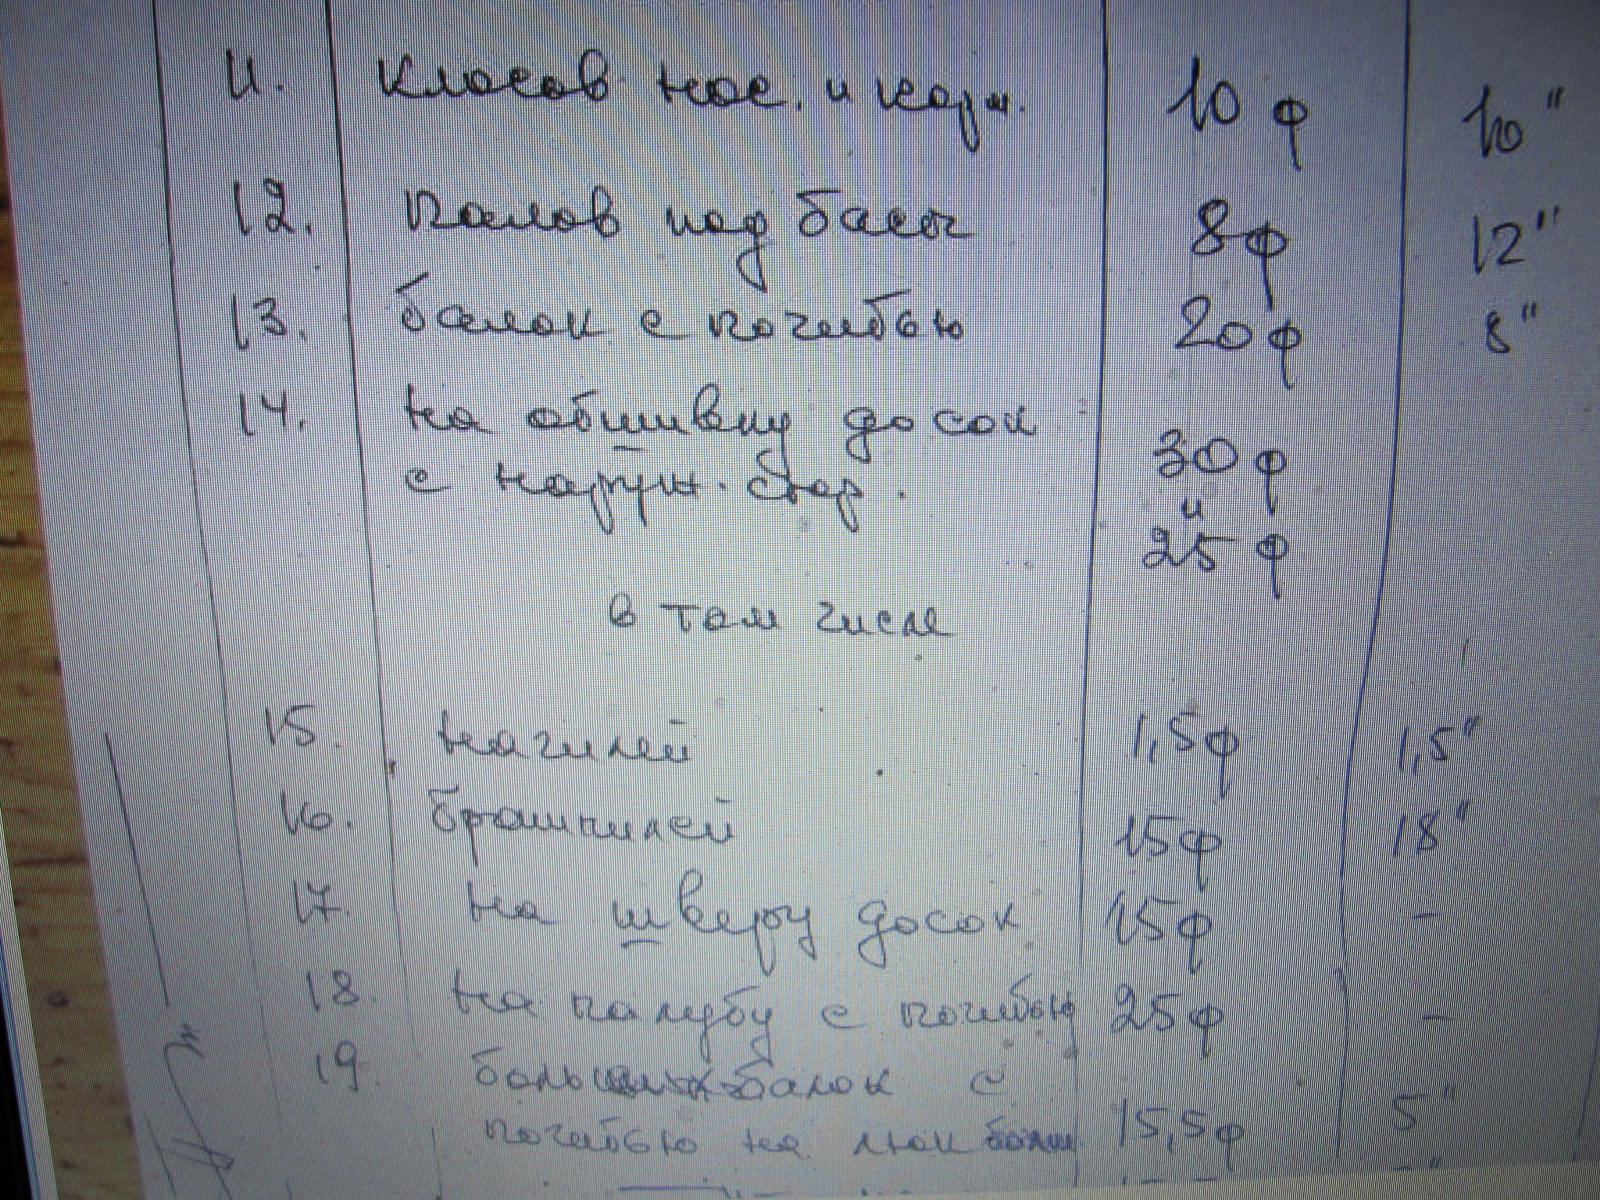 11. клюсов нос. и корм. 10 ф 10"
12. палов под бакоч 8ф 12"
13. балок с погибью 20ф 8"
14. на обшивку досок
с наружн. стор. 30 ф
и
25 ф
в том числе
15. нагилей 1,5ф 1,5"
16. брашпилей 15ф 18"
17. на шверу досок 15ф -
18. на палубу с погибью 25ф -
19. больших балок с
погибью на люк 15,5ф 5"